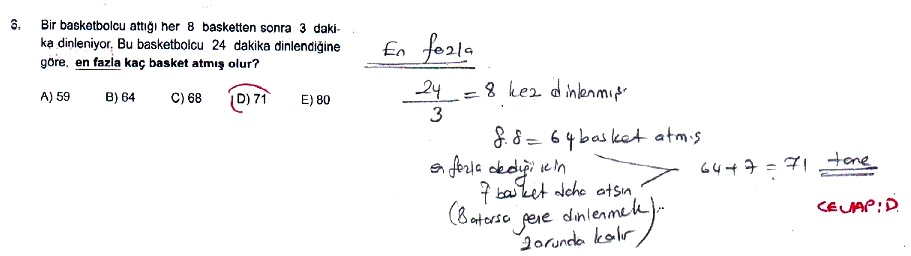 6. Bir basketbolcu attığı her 8 basketten sonra 3 daki-
ka dinleniyor. Bu basketbolcu 24 dakika dinlendiğine
göre, en fazla kaç basket atmış olur?
A) 59 B) 64 C) 68 D) 71 E) 80
En fazla
24/3 = 8 kez dinlenmiş.
8.8 = 64 basket atmış
en fazla dediği için
7 basket daha atsın
(8 atarsa gene dinlenmek
zorunda kalır)
64+7 = 71 tane
CEVAP: D